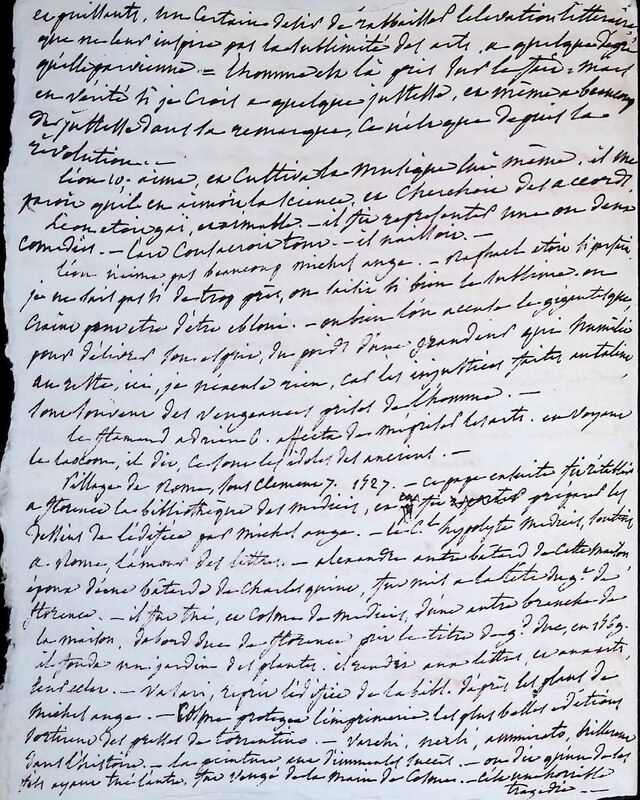 et puillants, un certain desir de rabbaisser l'elevation litteraire
que ne leur inspire pas la sublimité des arts, a quelque degré
qu'elle parvienne. = l'homme est là pris sur le fait = mais
en vérité si je crois a quelque justesse, et même a beaucoup
de justesse dans la remarque, ce n'est que depuis la
révolution. —
Léon 10. aima, et cultiva la musique lui même, il me
paroit qu'il en aimoit la science, et cherchoit des accords
Léon etoit gai, et aimable — il fit représenter une ou deux
comédies. — l'art consacroit tout. — il naissoit. —
Léon n'aima pas beaucoup michel ange. — Raphael etoit si parfait
je ne sais pas si de trop près, on saisit si bien le sublime. on
craint peut etre d'être ebloui. — ou bien l'on accuse le gigantesque,
pour délivrer son esprit, du poids d'une grandeur qui humilie
au reste, ici, je n'excuse rien, car les injustices faites au talent
sont souvent des vengeances prises de l'homme. —
le flamand adrien 6. affecta de mépriser les arts. en voyant
le laocoon, il dit, ce sont les idoles des anciens. —
Pillage de Rome, sous Clement 7. 1527. — ce pape ensuite fit rétablir
a florence la bibliothèque des medicis, et en fit préparer les
dessins de l'édifice par michel ange. — le Cal hyppolyte medicis, soutint
a Rome, l'amour des lettres. — alexandre autre batard de cette maison
epoux d'une bâtarde de Charles quint, fut mis a la tête du g.t de
florence. — il fut tué, et Cosme de medicis, d'une autre branche de
la maison, d'abord duc de florence prit le titre de g.d duc, en 1569.
il fonda un jardin des plantes. il rendit aux lettres, et aux arts,
leur eclat. — Vasari, reprit l'édifice de la bibl. d'après les plans de
michel ange. — Cosme protegea l'imprimerie. les plus belles editions
sortirent des presses de torrentino. — Varchi, nerli, ammirato, brillerent
dans l'histoire. — la peinture eut d'immenses succès. — on dit qu'un de ses
fils ayant tué l'autre, fut vengé de la main de Cosme. — c'est une horrible
tragedie. —